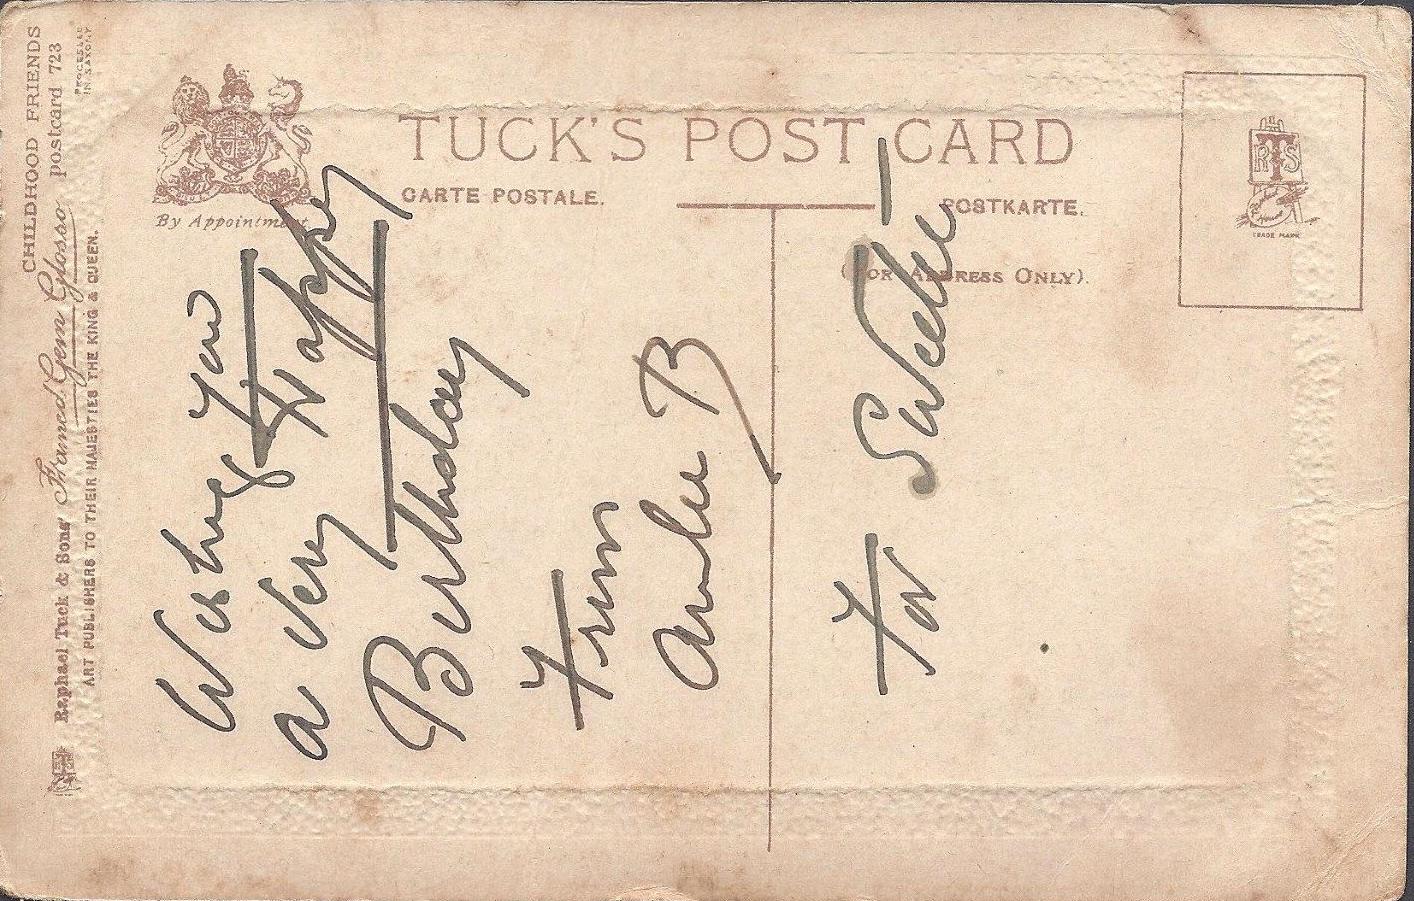 CHILDHOOD FRIENDS
Raphael Tuck & Sons' Framed Gem Glosso postcard 723
ART PUBLISHERS TO THEIR MAJESTIES THE KING & QUEEN.
PROCESSED
IN SAXONY
By Appointment
TUCK'S POST CARD
CARTE POSTALE.
POSTKARTE.
(FOR ADDRESS ONLY).
RTS
Raphael
House
TRADE MARK
Wishing you
a very Happy
Birthday
From
B
For